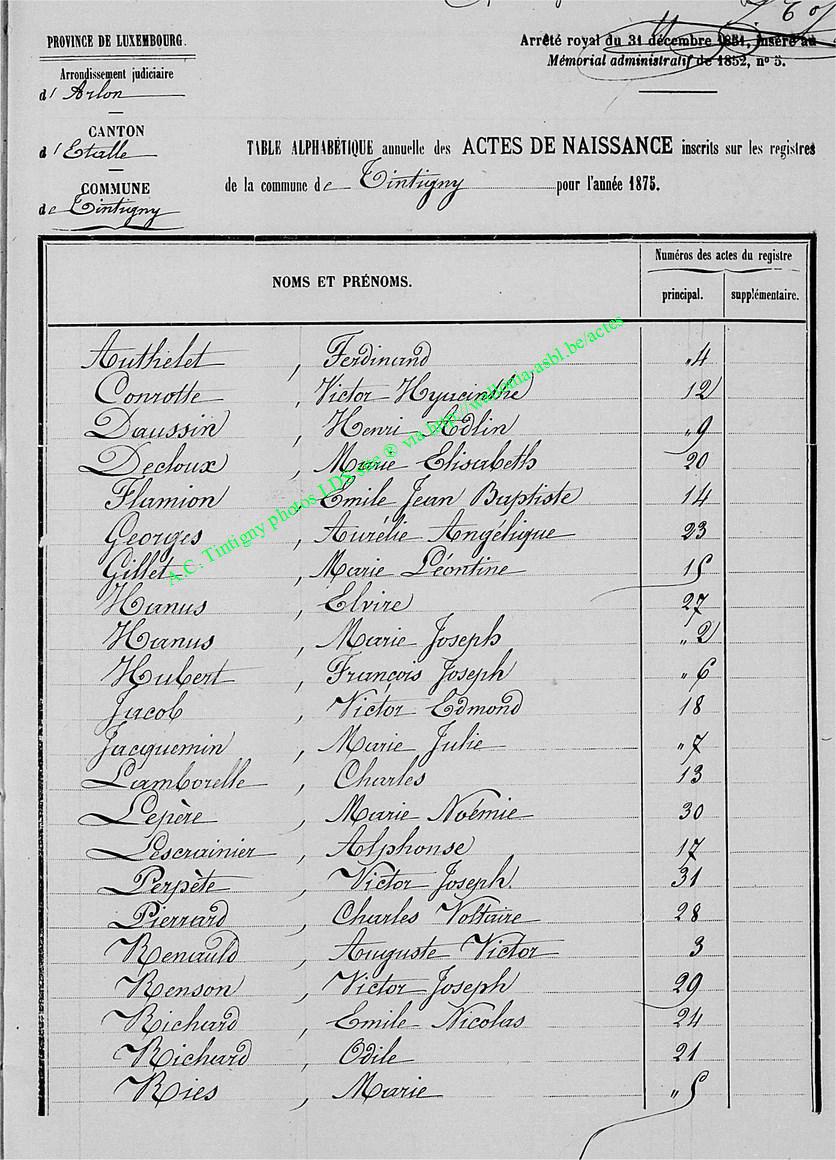 PROVINCE DE LUXEMBOURG.
Arrondissement judiciaire
d' Arlon
CANTON
d' Etalle
COMMUNE
de Tintigny
Arrêté royal du 31 décembre 1851, inséré au
Mémorial administratif de 1852, n° 5.
TABLE ALPHABÉTIQUE annuelle des ACTES DE NAISSANCE inscrits sur les registres
de la commune de Tintigny pour l'année 1875.
NOMS ET PRÉNOMS.
Numéros des actes du registre
principal. supplémentaire.
Authelet, Ferdinand "4
Conrotte, Victor Hyacinthe 12
Daussin, Henri Edlin "9
Decloux, Marie Elisabeth 20
Flamion, Emile Jean Baptiste 14
Georges, Aurélie Angélique 23
Gillet, Marie Léontine 15
Hanus, Elvire 27
Hanus, Marie Joseph "2
Hubert, François Joseph "6
Jacob, Victor Edmond 18
Jacquemin, Marie Julie "7
Lamborelle, Charles 13
Lepère, Marie Noémie 30
Lescrainier, Alphonse 17
Perpète, Victor Joseph. 31
Pierrard, Charles Voltaire 28
Renauld, Auguste Victor 3
Renson, Victor Joseph 29
Richard, Emile Nicolas 24
Richard, Odile 21
Ries, Marie "5
A.C. Tintigny photos LDS site ® via http://wallonia-asbl.be/actes